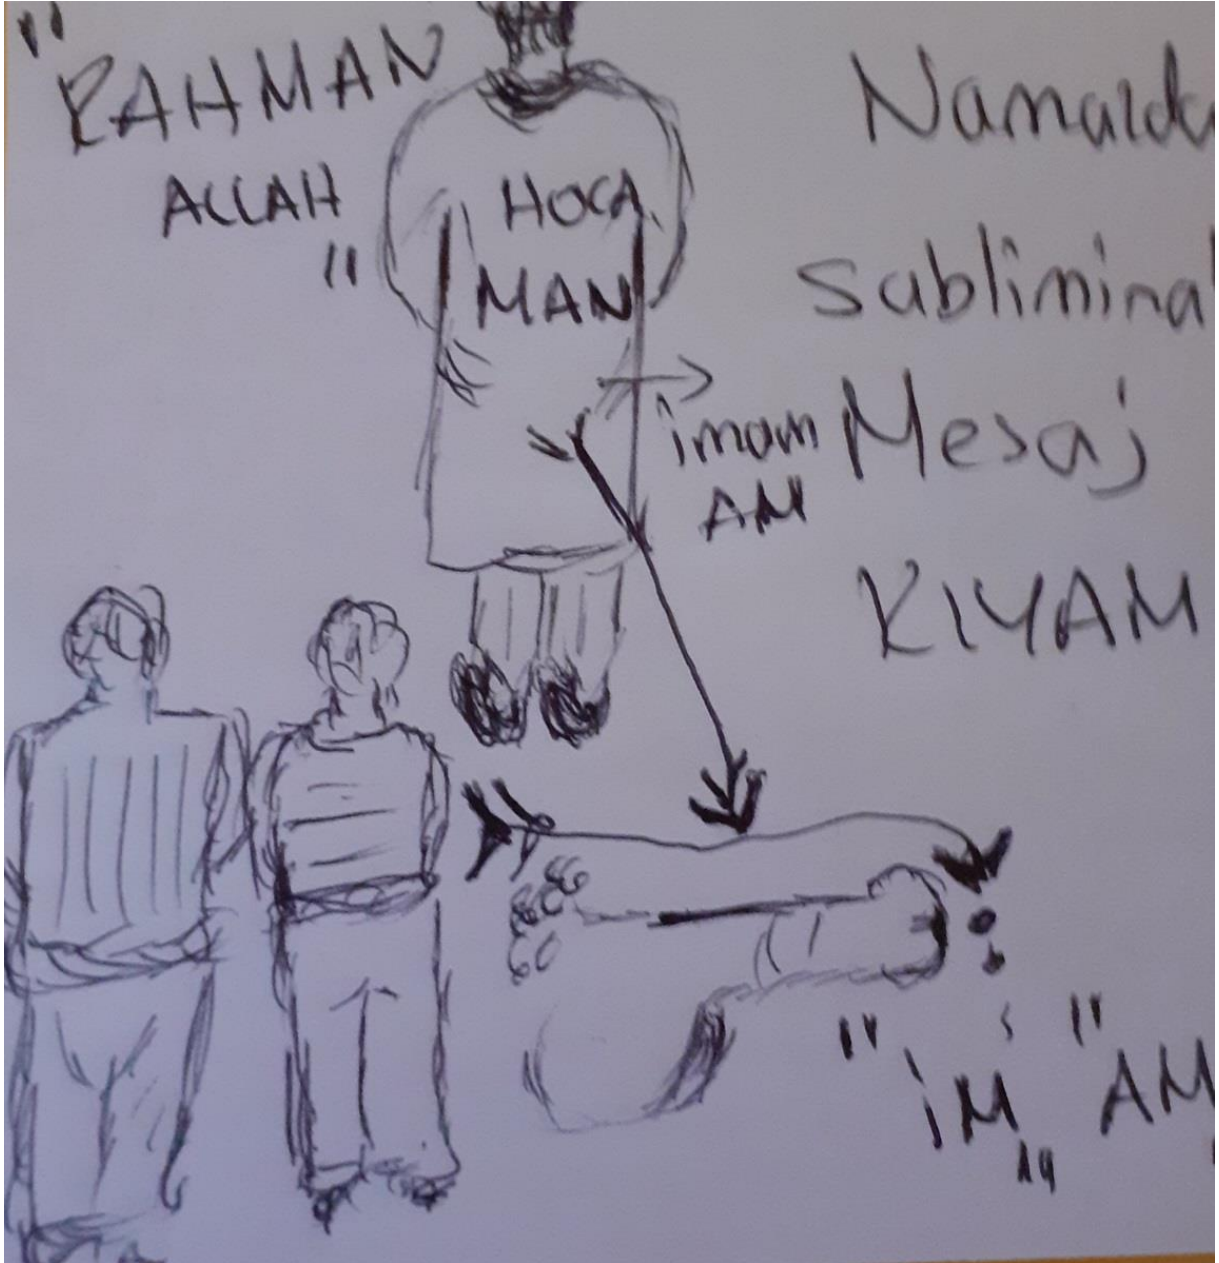 "RAHMAN
ALLAH"
HOCA
MAN
Namazda
Subliminal
Mesaj
imam
AM
KIYAM
"iM" "AM